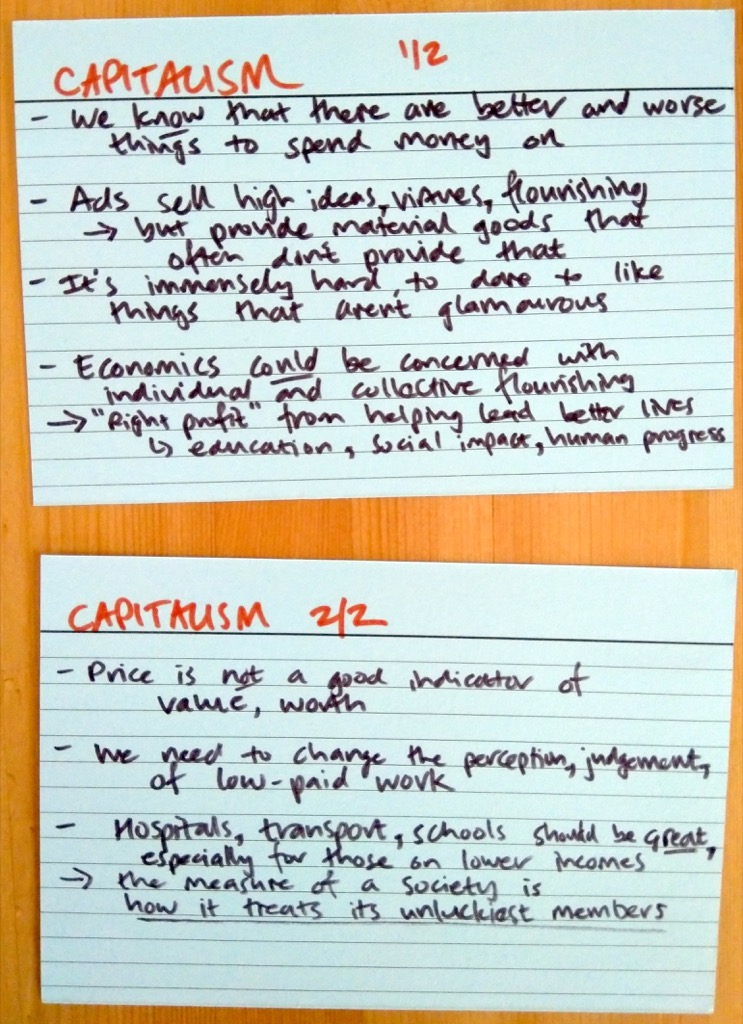 CAPITALISM 1/2
- We know that there are better and worse
things to spend money on
- Ads sell high ideas, virtues, flourishing
→ but provide material goods that
often don't provide that
- It's immensely hard, to dare to like
things that aren't glamourous
- Economics could be concerned with
individual and collective flourishing
→ "Right profit" from helping lead better lives
↳ education, social impact, human progress
CAPITALISM 2/2
- Price is not a good indicator of
value, worth
- We need to change the perception, judgement,
of low-paid work
- Hospitals, transport, schools should be great,
especially for those on lower incomes
→ the measure of a society is
how it treats its unluckiest members